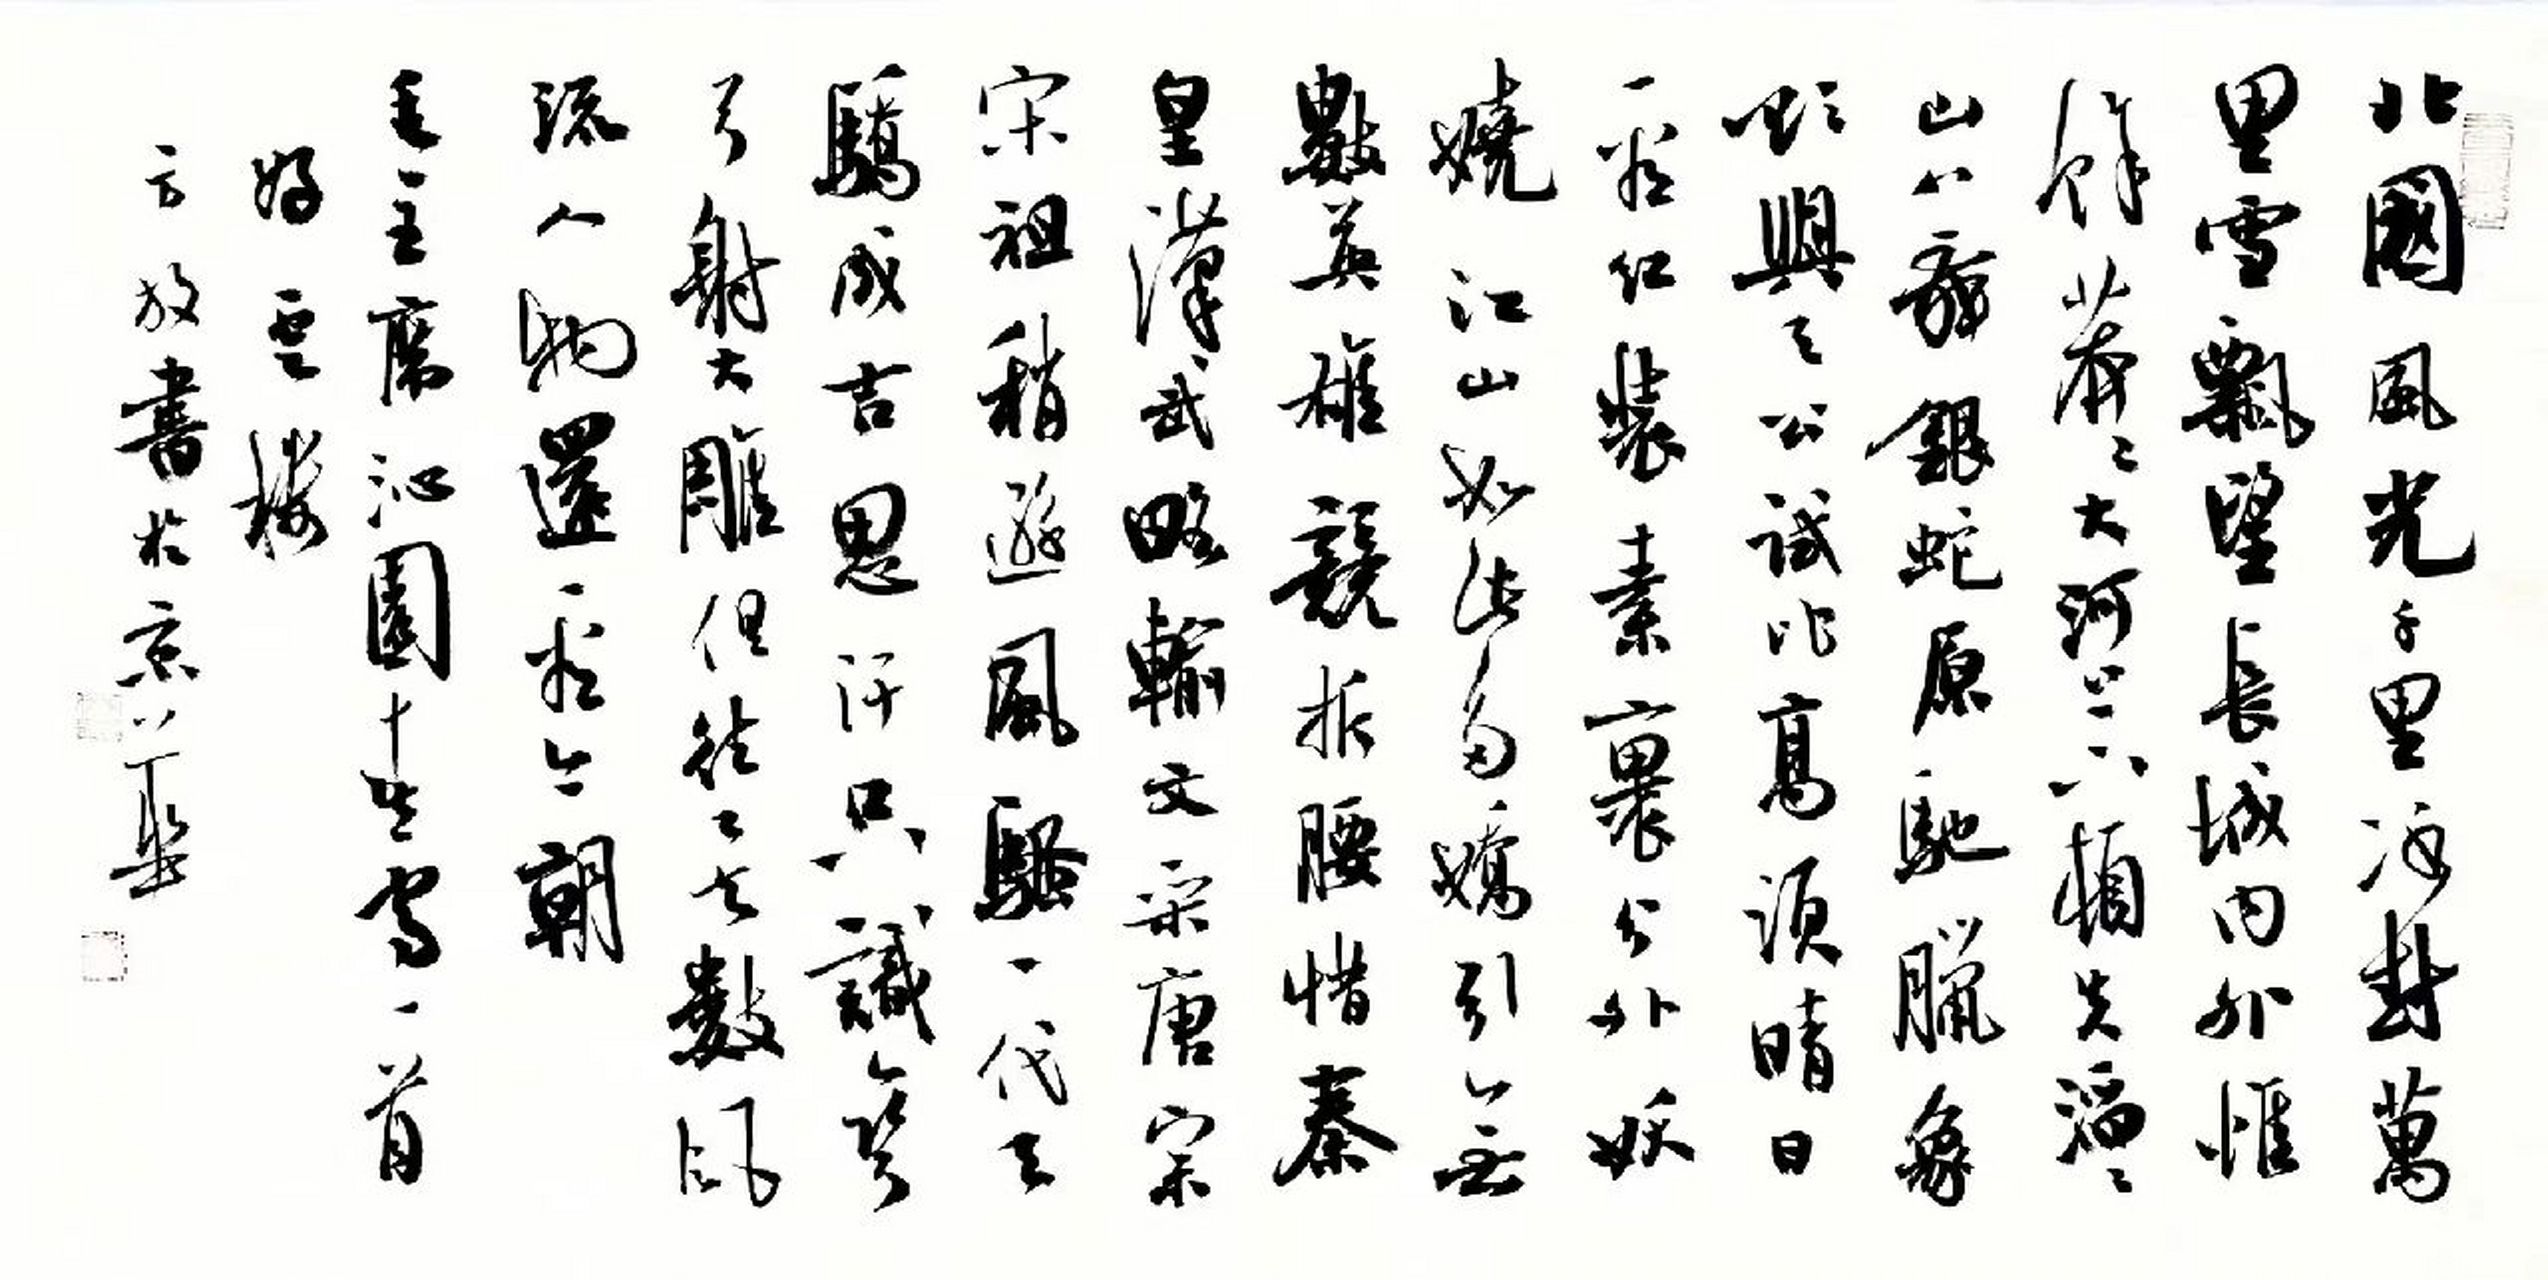 北國風光千里冰封萬
里雪飄望長城內外惟
餘莽〻大河上下頓失滔〻
山舞銀蛇原馳臘象
欲與天公試比高須晴日
看紅裝素裹分外妖
嬈江山如此多嬌引無
數英雄競折腰惜秦
皇漢武略輸文采唐宗
宋祖稍遜風騷一代天
驕成吉思汗只識彎
弓射大雕俱往矣數風
流人物還看今朝
毛主席沁園春雪一首
好雲樓
方放書於京華